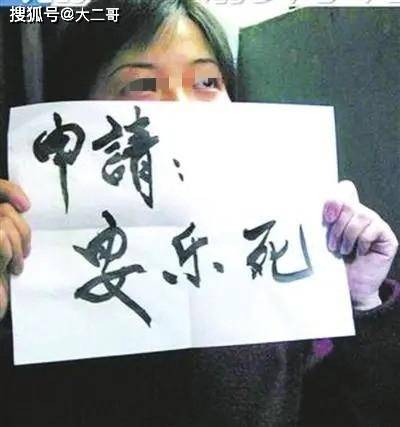 搜狐号@大二哥
申請：
安乐死